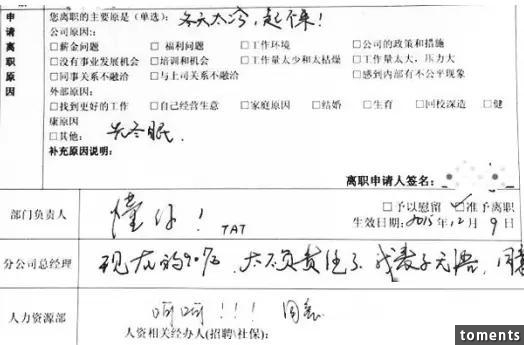 申请离职原因
您离职的主要原是(单选): 冬天太冷,起不来!
公司原因::
□薪金问题 □福利问题 □工作环境 □公司的政策和措施
□没有事业发展机会 □培训和机会 □工作量太少和太枯燥 □工作量太大,压力大
□同事关系不融洽 □与上司关系不融洽 □感到内部有不公平现象
外部原因:
□找到更好的工作 □自己经营生意 □家庭原因 □结婚 □生育 □回校深造 □健
康原因
□其他: 先冬眠.
补充原因说明:
离职申请人签名:
部门负责人 懂你! TAT
□予以慰留 ☑准予离职
生效日期: 2015年12月9日
分公司总经理 现在的90后,太不负责任了,我表示无语,同意
人力资源部 呵呵!!! 同意
人资相关经办人(招聘\社保):
toments